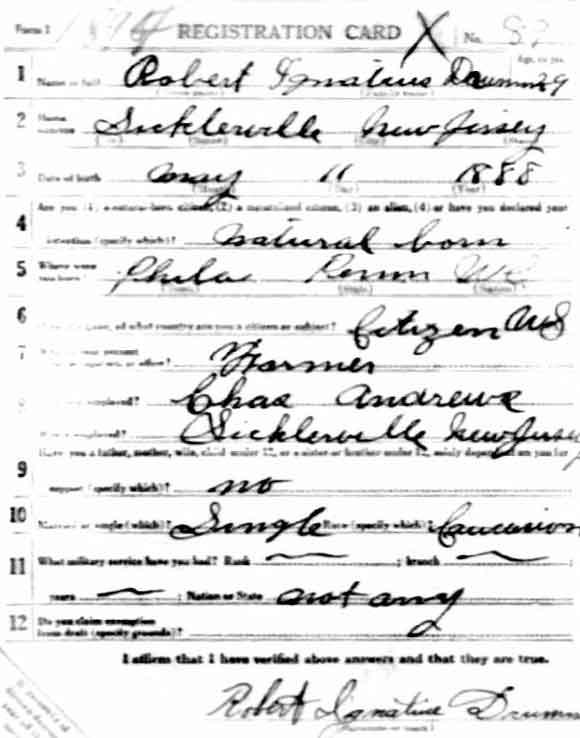 Form 1 REGISTRATION CARD X No. 83
1 Name in full Robert Ignatius Drumm 29
Age, in yrs.
2 Home address Sicklerville New Jersey
3 Date of birth May 11 1888
(Month) (Day) (Year)
Are you (1) a natural-born citizen, (2) a naturalized citizen, (3) an alien, (4) or have you declared your
4 intention (specify which)? natural born
5 Where were you born? Phila Penn
6 of what country are you a citizen or subject? Citizen US
7 Farmer
employed? Chas Andrews
employed? Sicklerville New Jersey
Have you a father, mother, wife, child under 12, or a sister or brother under 12, solely dependent on you for
9 support (specify which)? no
10 Married or single (which)? Single Race (specify which)? Caucasion
11 What military service have you had? Rank — ; branch —
years — ; Nation or State not any
12 Do you claim exemption
from draft (specify grounds)?
I affirm that I have verified above answers and that they are true.
Robert Ignatius Drumm